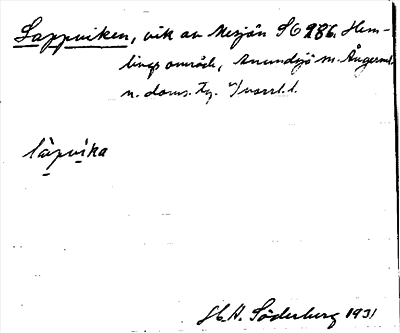 Lappviken, vik av Mesjön SO 286. Hem-
lings område, Anundsjö sn. Ångerml.
n. doms. Tg. V/norrl. l.
làpvika
H. A. Söderberg 1931